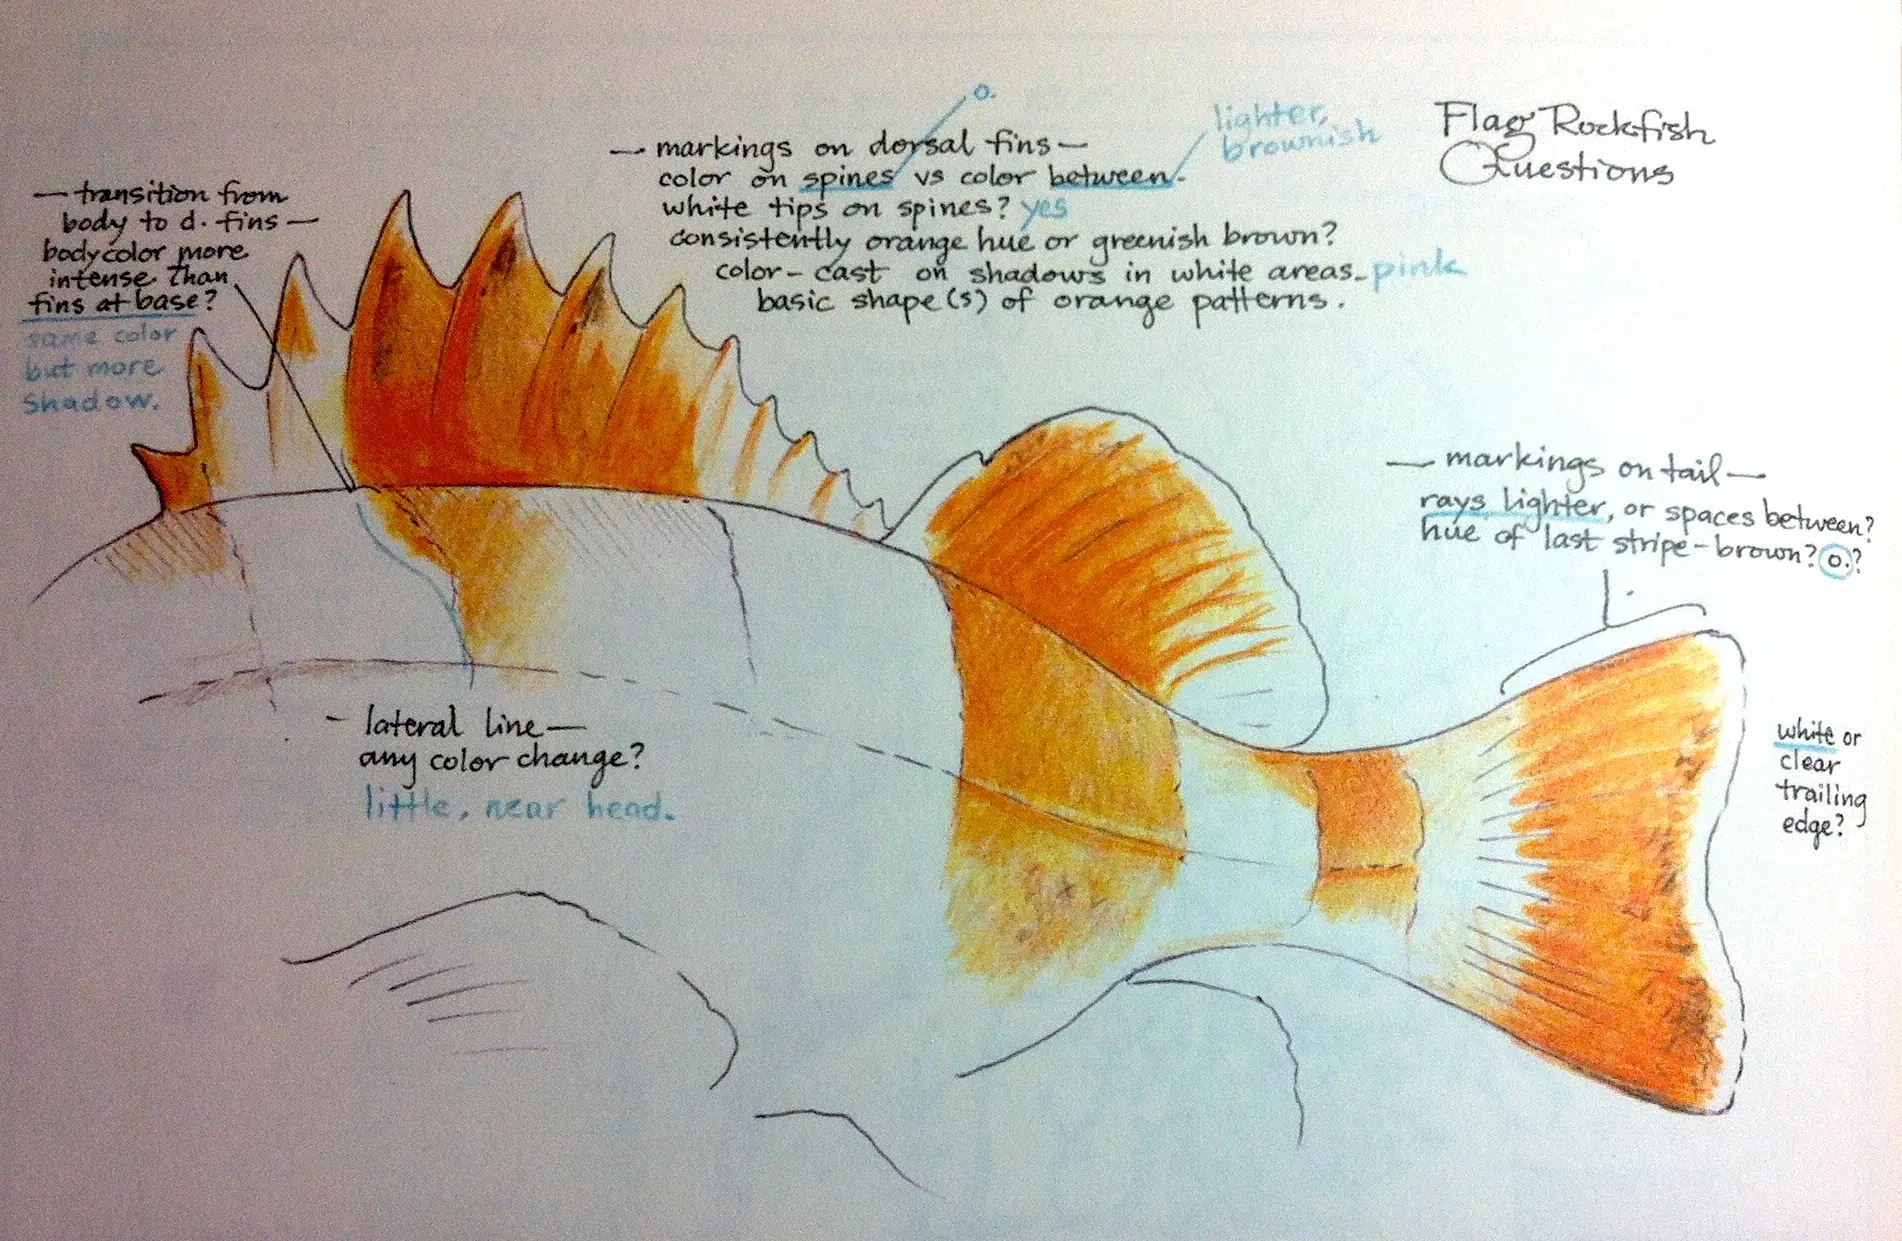 Flag Rockfish
Questions
— transition from
body to d. fins —
body color more
intense than
fins at base?
same color
but more
shadow.
o.
lighter,
brownish
— markings on dorsal fins —
color on spines vs color between.
white tips on spines? yes
consistently orange hue or greenish brown?
color-cast on shadows in white areas. pink
basic shape(s) of orange patterns.
— markings on tail —
rays lighter, or spaces between?
hue of last stripe - brown? o.?
white or
clear
trailing
edge?
- lateral line —
any color change?
little, near head.